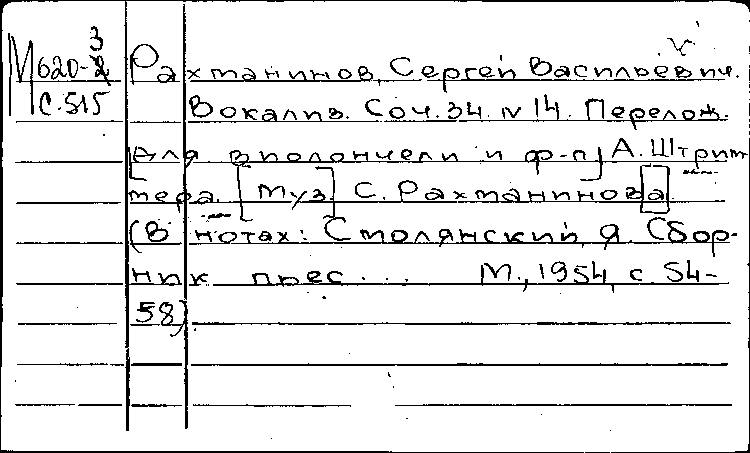 М620-3 Рахманинов, Сергей Васильевич.
С.515 Вокализ. Соч. 34. N 14. Перелож.
[для виолончели и ф-п] А. Штрим
мера. [Муз.] С. Рахманинов[а]
(В нотах: Столянский, Я. Сбор-
ник пьес... М., 1954, с. 54-
58).